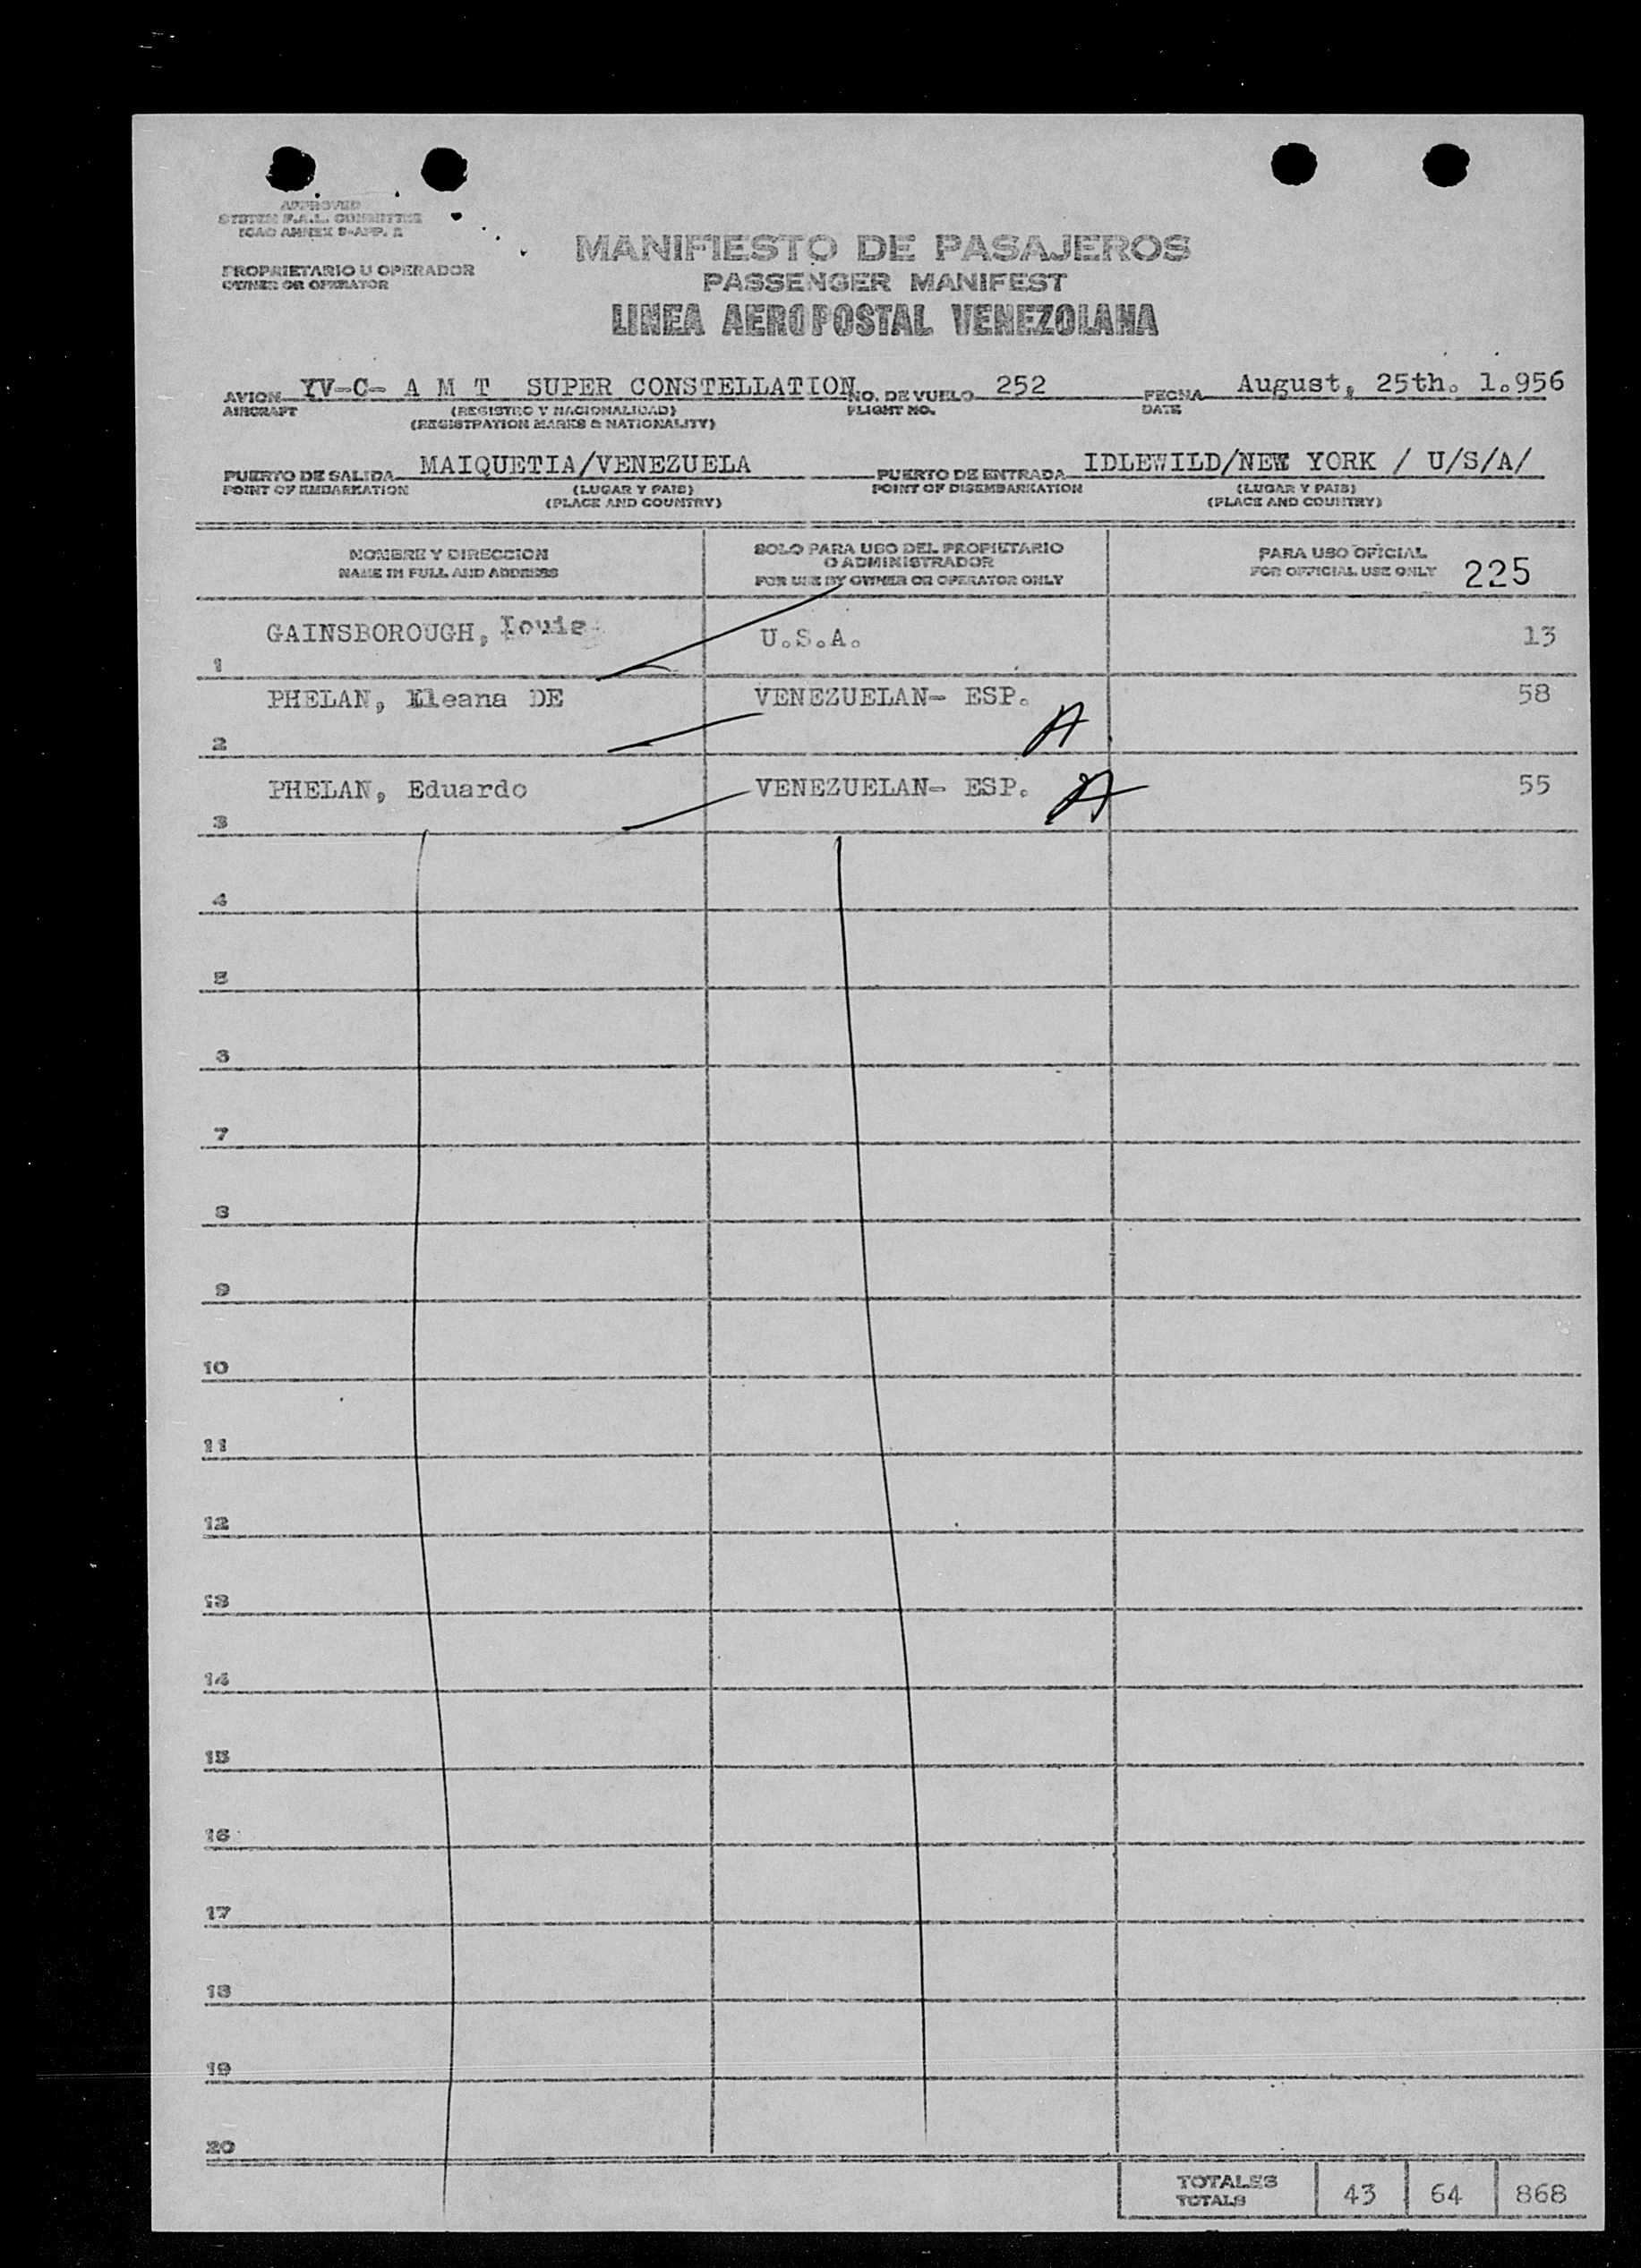 APPROVED
SYSTEM F.A.L. COMMITTEE
ICAO ANNEX 9-APP. 2
PROPRIETARIO U OPERADOR
OWNER OR OPERATOR
MANIFIESTO DE PASAJEROS
PASSENGER MANIFEST
LINEA AEROPOSTAL VENEZOLANA
AVION YV-C- A M T SUPER CONSTELLATION NO. DE VUELO 252 FECHA August, 25th. 1.956
AIRCRAFT (REGISTRO Y NACIONALIDAD) FLIGHT NO. DATE
(REGISTRATION MARKS & NATIONALITY)
PUERTO DE SALIDA MAIQUETIA/VENEZUELA PUERTO DE ENTRADA IDLEWILD/NEW YORK / U/S/A/
POINT OF EMBARKATION (LUGAR Y PAIS) POINT OF DISEMBARKATION (LUGAR Y PAIS)
(PLACE AND COUNTRY) (PLACE AND COUNTRY)
NOMBRE Y DIRECCION SOLO PARA USO DEL PROPIETARIO PARA USO OFICIAL
O ADMINISTRADOR
NAME IN FULL AND ADDRESS FOR USE BY OWNER OR OPERATOR ONLY FOR OFFICIAL USE ONLY 225
GAINSBOROUGH, Louis U.S.A. 13
1
PHELAN, Eleana DE VENEZUELAN- ESP. 58
A
2
PHELAN, Eduardo VENEZUELAN- ESP. A 55
3
4
5
6
7
8
9
10
11
12
13
14
15
16
17
18
19
20
TOTALES 43 64 868
TOTALS